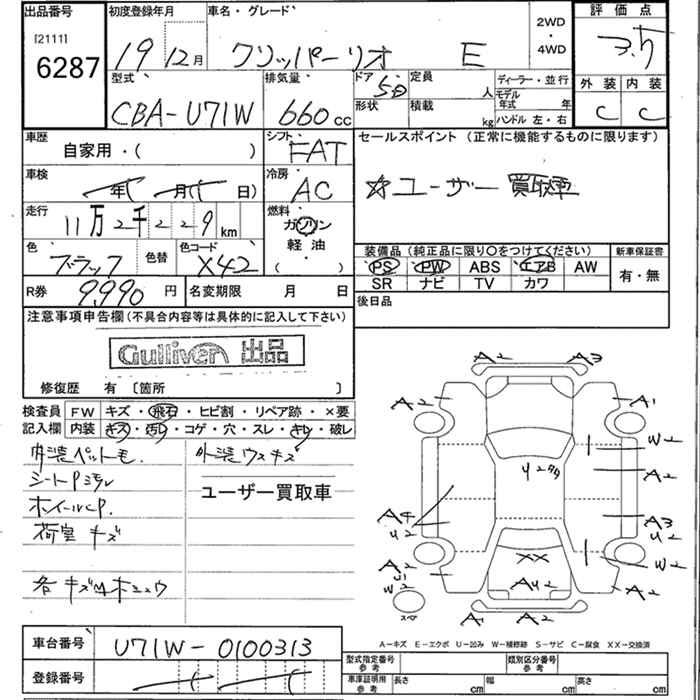 出品番号 初度登録年月 車名・グレード 2WD・4WD 評価点
[2111]
6287 19年12月 クリッパーリオ E 3.5
型式 排気量 ドア 定員 ディーラー・並行 外装 内装
CBA-U71W 660cc 5D 人 モデル年式 年 C C
形状 積載 kg ハンドル 左・右
車歴 シフト セールスポイント (正常に機能するものに限ります)
自家用・( ) FAT
車検 年 月( 日) 冷房 AC ☆ユーザー買取車
走行 11万2千229km 燃料 ガソリン
軽油
( )
色 ブラック 色替 色コード X42
装備品 (純正品に限り○をつけてください) 新車保証書
PS PW ABS エアB AW 有・無
SR ナビ TV カワ
R券 9,990円 名変期限 月 日 後日品
注意事項申告欄(不具合内容等は具体的に記入して下さい)
Gulliver 出品
修復歴 有〔箇所 〕
検査員 FW キズ・飛石・ヒビ割・リペア跡・×要
記入欄 内装 キズ・汚レ・コゲ・穴・スレ・キレ・破レ
内装ペットモ. 外装ウスキズ
シートP汚レ ユーザー買取車
ホイールCP.
荷室 キズ
各キズ
A2 A3
A2 A1
W2
U2
A2
A4 A3
U2 U2
A2 W2
XX
W2 AU2 A2
スペア
A1 A2
A-キズ E-エクボ U-凹み W-補修跡 S-サビ C-腐食 XX-交換済
車台番号 U71W-0100313
型式指定番号 参考 類別区分番号 参考
登録番号 車庫証明用 参考 長さ cm 幅 cm 高さ cm